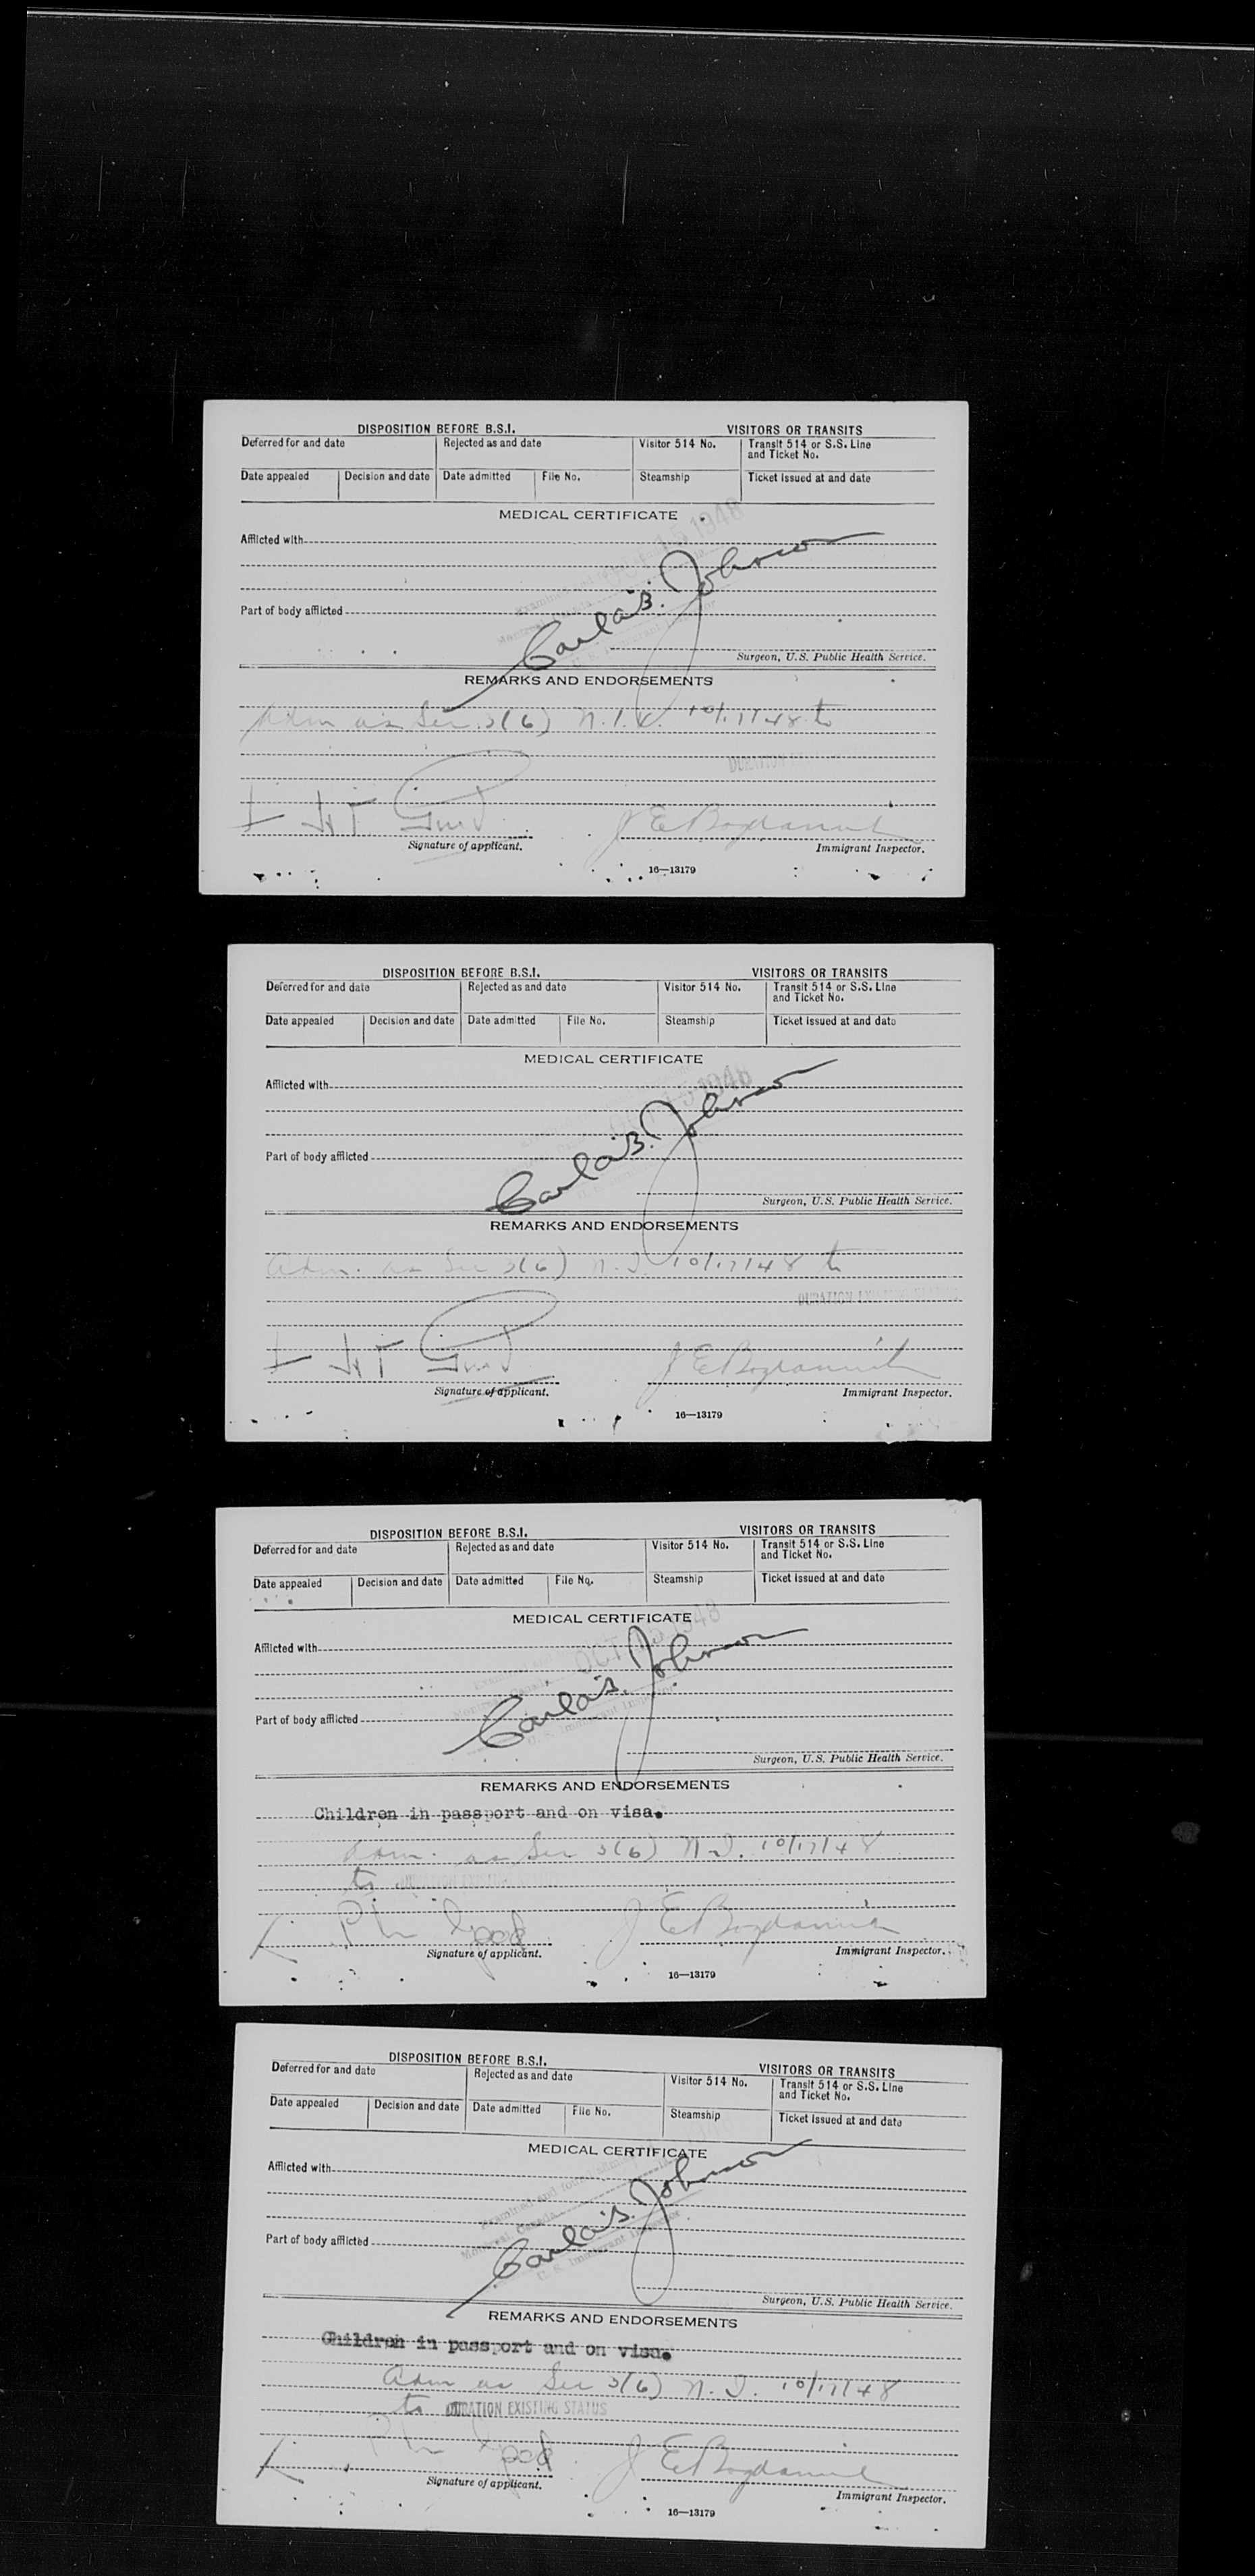 DISPOSITION BEFORE B.S.I. VISITORS OR TRANSITS
Deferred for and date Rejected as and date Visitor 514 No. Transit 514 or S.S. Line and Ticket No.
Date appealed Decision and date Date admitted File No. Steamship Ticket issued at and date
MEDICAL CERTIFICATE
Afflicted with
Part of body afflicted
Surgeon, U.S. Public Health Service.
REMARKS AND ENDORSEMENTS
Adm as Sec 3(6) 10/17/48 to
Signature of applicant. Immigrant Inspector.
16—13179
DISPOSITION BEFORE B.S.I. VISITORS OR TRANSITS
Deferred for and date Rejected as and date Visitor 514 No. Transit 514 or S.S. Line and Ticket No.
Date appealed Decision and date Date admitted File No. Steamship Ticket issued at and date
MEDICAL CERTIFICATE
Afflicted with
Part of body afflicted
Surgeon, U.S. Public Health Service.
REMARKS AND ENDORSEMENTS
Adm. as Sec 3(6) 10/17/48 to
Signature of applicant. Immigrant Inspector.
16—13179
DISPOSITION BEFORE B.S.I. VISITORS OR TRANSITS
Deferred for and date Rejected as and date Visitor 514 No. Transit 514 or S.S. Line and Ticket No.
Date appealed Decision and date Date admitted File No. Steamship Ticket issued at and date
MEDICAL CERTIFICATE
Afflicted with
Part of body afflicted
Surgeon, U.S. Public Health Service.
REMARKS AND ENDORSEMENTS
Children in passport and on visa.
Adm. as Sec 3(6) 10/17/48
to
Signature of applicant. Immigrant Inspector.
16—13179
DISPOSITION BEFORE B.S.I. VISITORS OR TRANSITS
Deferred for and date Rejected as and date Visitor 514 No. Transit 514 or S.S. Line and Ticket No.
Date appealed Decision and date Date admitted File No. Steamship Ticket issued at and date
MEDICAL CERTIFICATE
Afflicted with
Part of body afflicted
Surgeon, U.S. Public Health Service.
REMARKS AND ENDORSEMENTS
Children in passport and on visa.
Adm as Sec 3(6) 10/17/48
to DURATION EXISTING STATUS
Signature of applicant. Immigrant Inspector.
16—13179